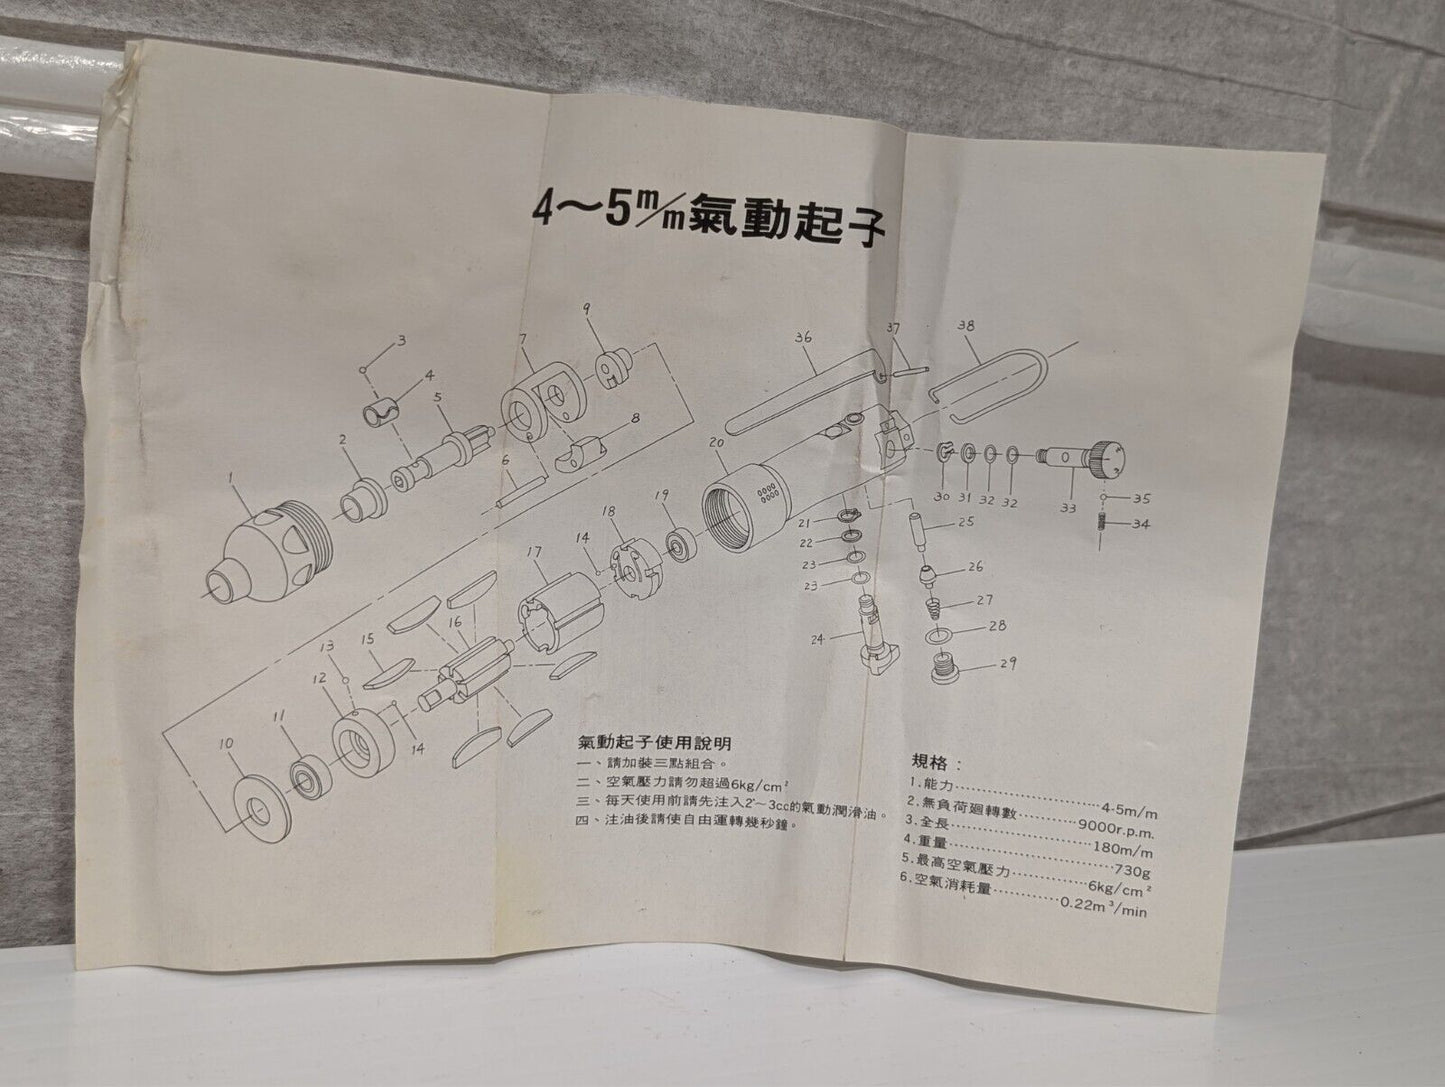 4～5m/m氣動起子
9
3
7
36
37
38
4
5
2
8
20
1
6
19
30
31
32
32
33
35
34
18
21
25
14
22
17
23
26
23
27
16
28
15
24
29
13
12
11
14
10
氣動起子使用說明
一、請加裝三點組合。
二、空氣壓力請勿超過6kg/cm²
三、每天使用前請先注入2～3cc的氣動潤滑油。
四、注油後請使自由運轉幾秒鐘。
規格：
1.能力……………………4-5m/m
2.無負荷廻轉數…………9000r.p.m.
3.全長……………………180m/m
4.重量……………………730g
5.最高空氣壓力…………6kg/cm²
6.空氣消耗量…………0.22m³/min